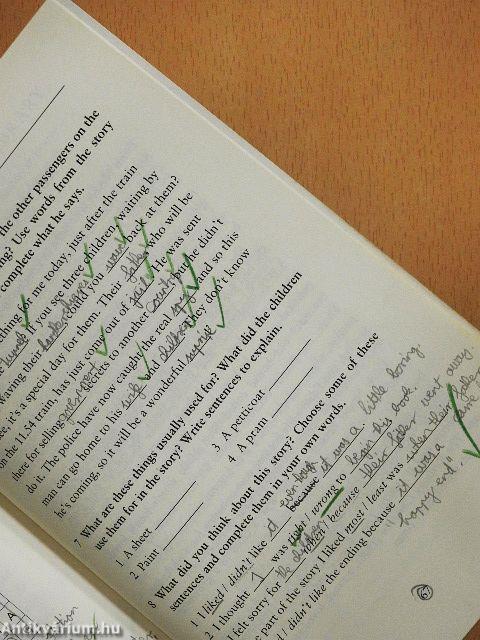 the other passengers on the
ing? Use words from the story
complete what he says.
thing for me today, just after the train
If you see three children waiting by
waving their handkerchieves could you wave back at them?
it's a special day for them. Their father who will be
on the 11.54 train, has just come out of jail. He was sent
there for selling government secrets to another country but he didn't
do it. The police have now caught the real spy and so this
man can go home to his wife and children they don't know
he's coming, so it will be a wonderful surprise
7 What are these things usually used for? What did the children
use them for in the story? Write sentences to explain.
1 A sheet
3 A petticoat
2 Paint
4 A pram
8 What did you think about this story? Choose some of these
sentences and complete them in your own words.
1 I liked / didn't like it because it was a little boring.
2 I thought I was right / wrong to begin this book.
I felt sorry for the children because their father went away
part of the story I liked most / least was when their
I didn't like the ending because it was a
"happy end".
67
Antikvárium.hu